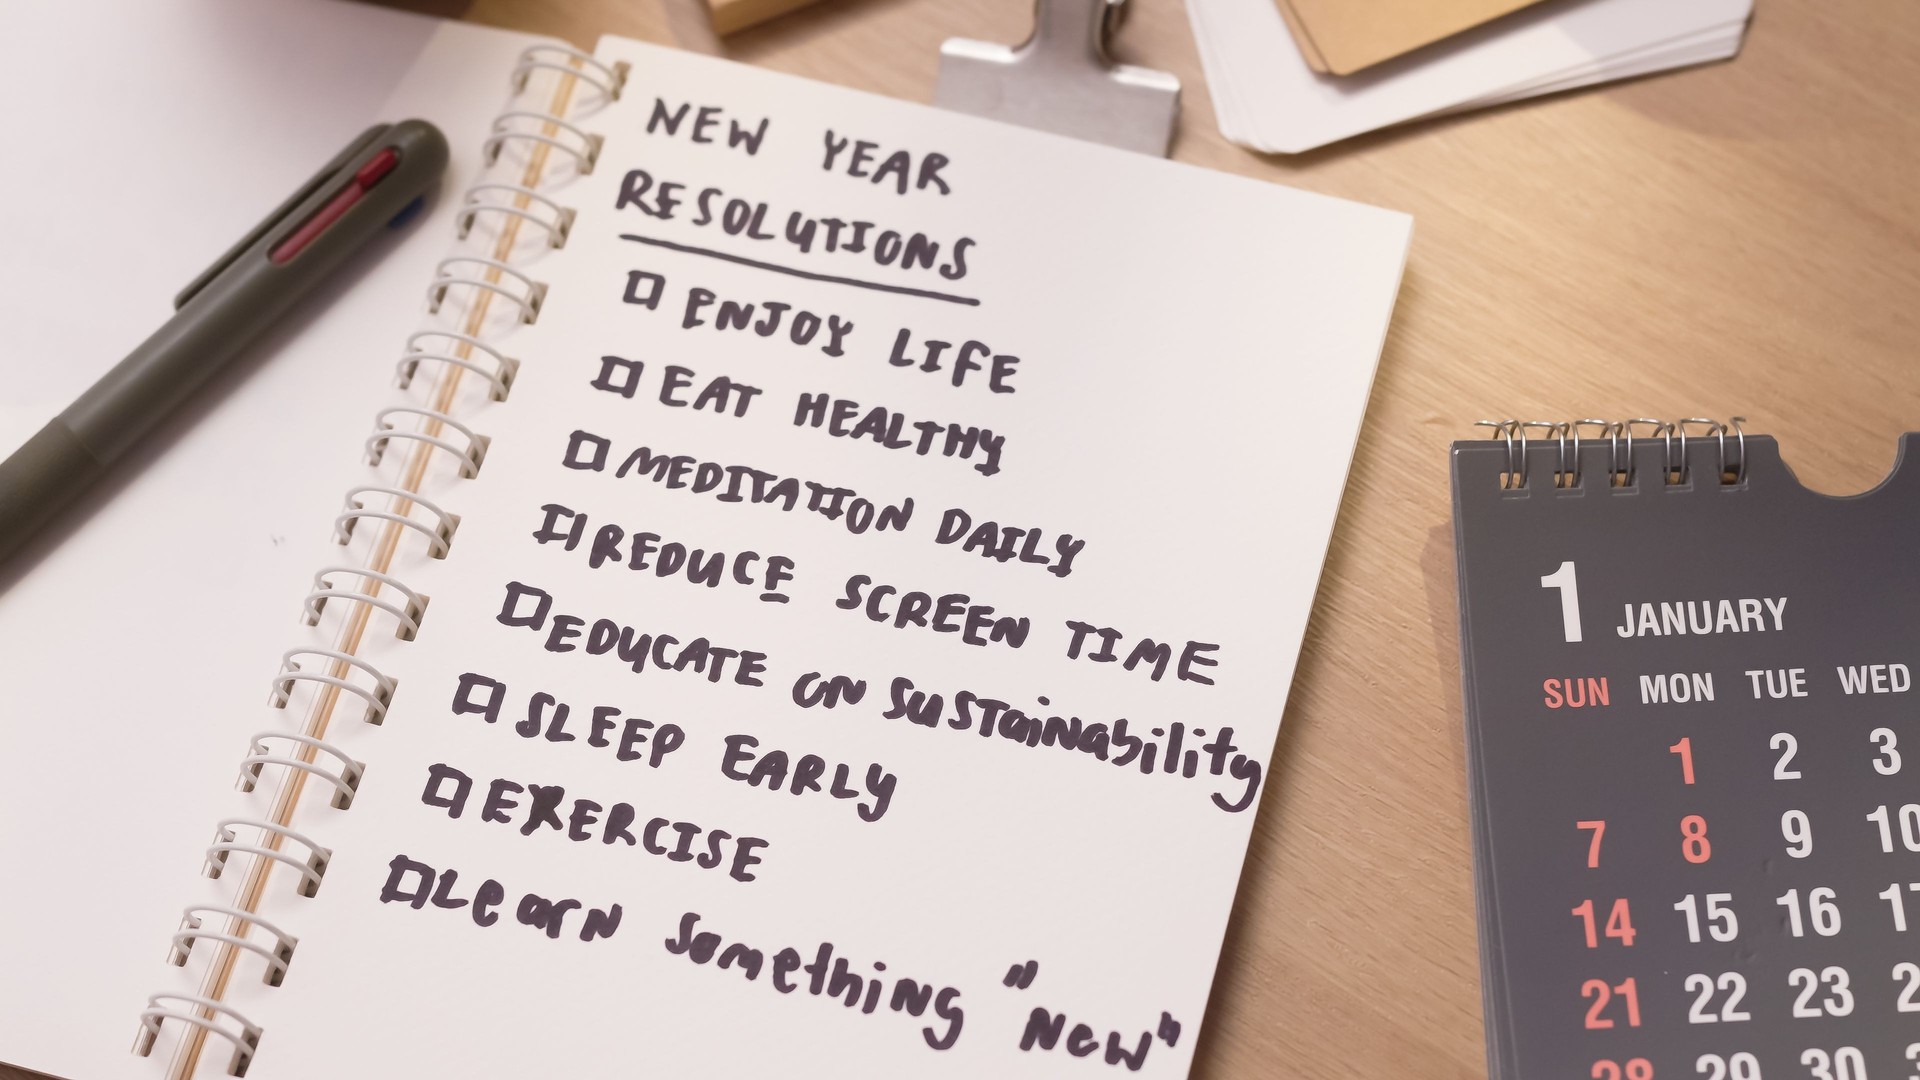 NEW YEAR
RESOLUTIONS
ENJOY LIFE
EAT HEALTHY
MEDITATION DAILY
REDUCE SCREEN TIME
EDUCATE ON SUSTAINABILITY
SLEEP EARLY
EXERCISE
Learn Something "New"
1 JANUARY
SUN MON TUE WED
1 2 3
7 8 9 10
14 15 16
21 22 23
28 29 30